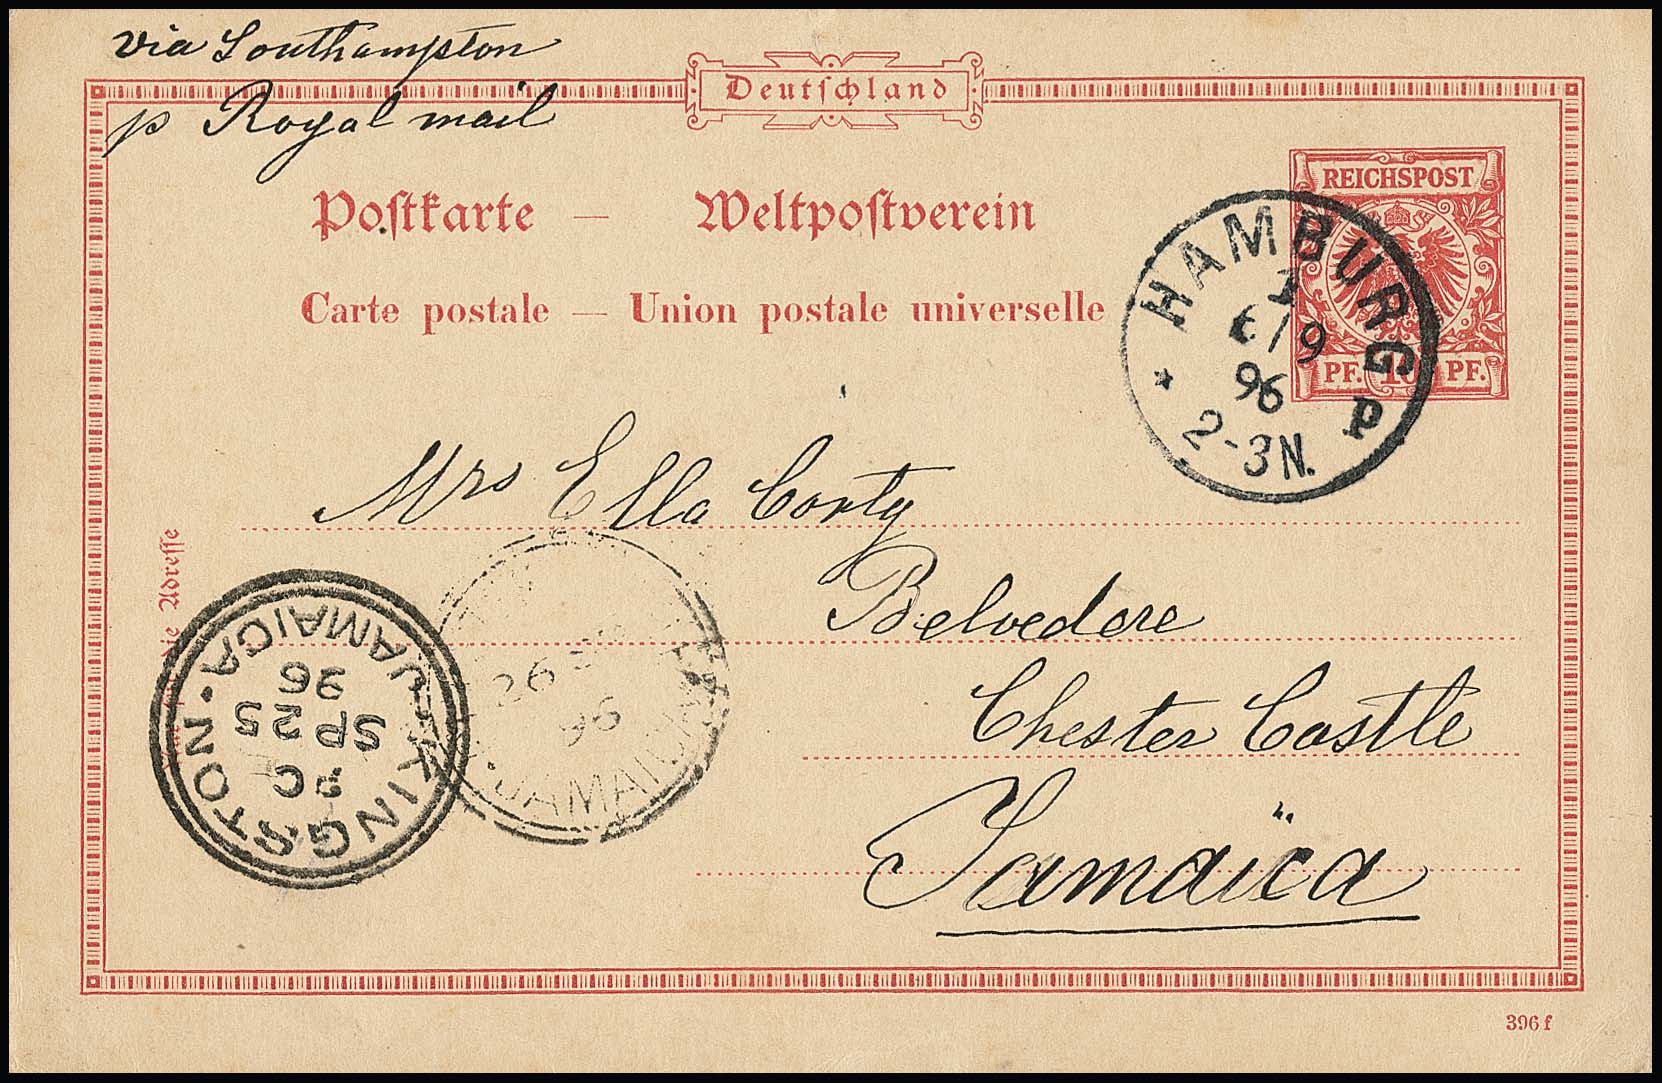 via Southampton
p Royal mail
Deutschland
Postkarte — Weltpostverein
Carte postale — Union postale universelle
REICHSPOST
PF. 10 PF.
HAMBURG
1
6/9
96
2-3N.
P
Mrs Ella Corty
Belvedere
Chester Castle
Jamaïca
Adresse
KINGSTON · JAMAICA ·
SP 25
96
26
96
JAMAICA
396 f